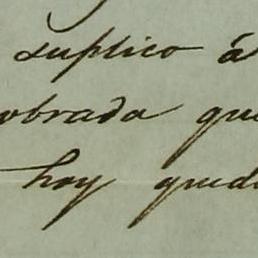 suplico á
obrada que
hoy qued